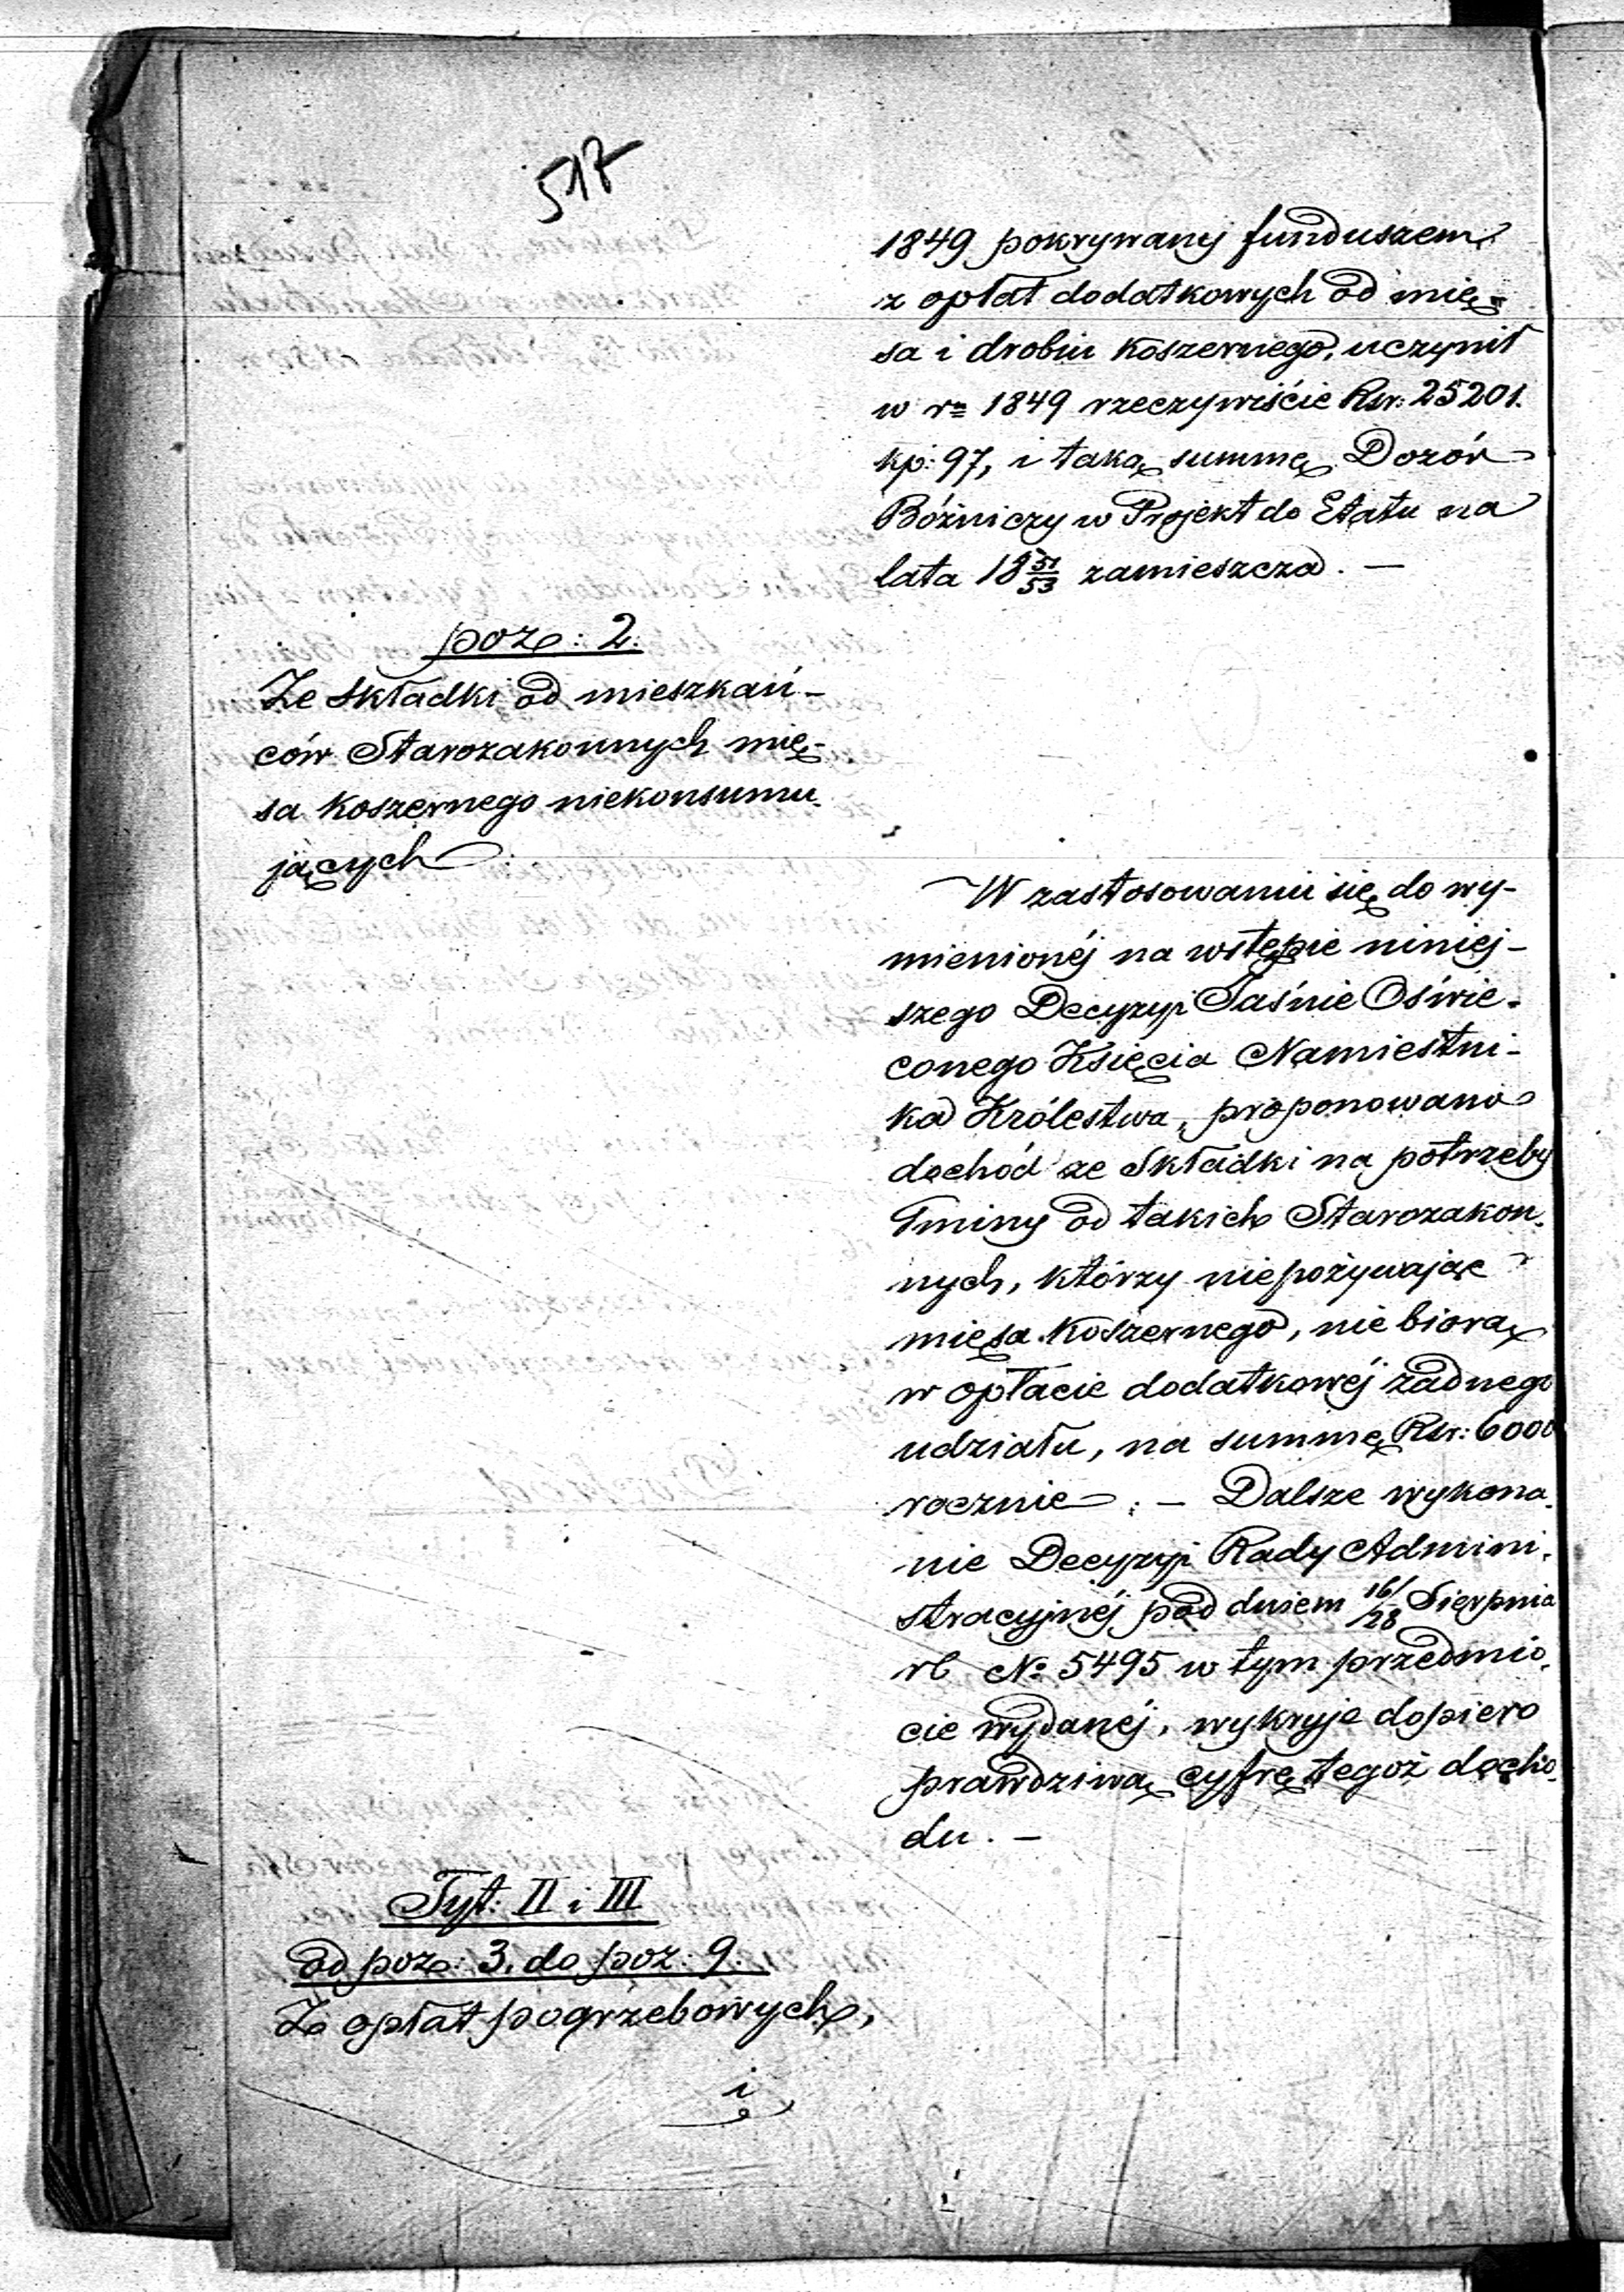 517
1849 pokrywany funduszem
z opłat dodatkowych od mię=
sa i drobiu koszernego, uczynił
w rº 1849 rzeczywiście Rsr: 25201.
kp: 97, i taką summę Dozór
Bóżniczy w Projekt do Etatu na
lata 18 51/53 zamieszcza. —
poz: 2.
Ze Składki od mieszkań-
ców Starozakonnych mię-
sa koszernego niekonsumu-
jących.
W zastosowaniu się do wy-
mienionéj na wstępie niniej-
szego Decyzyi Jaśnie Oświe-
conego Księcia Namiestni-
ka Królestwa, proponowano
dochód ze Składki na potrzeby
Gminy od takich Starozakon-
nych, którzy niepożywając
mięsa koszernego, nie biorą
w opłacie dodatkowéj żadnego
udziału, na summę Rsr: 6000
rocznie. — Dalsze wykona-
nie Decyzyi Rady Admini-
stracyjnéj pod dniem 16/28 Sierpnia
rb № 5495 w tym przedmio-
cie wydanéj, wykryje dopiero
prawdziwą cyfrę tegoż docho-
du. —
Tyt: II i III
od poz: 3. do poz: 9.
Z opłat pogrzebowych,
i